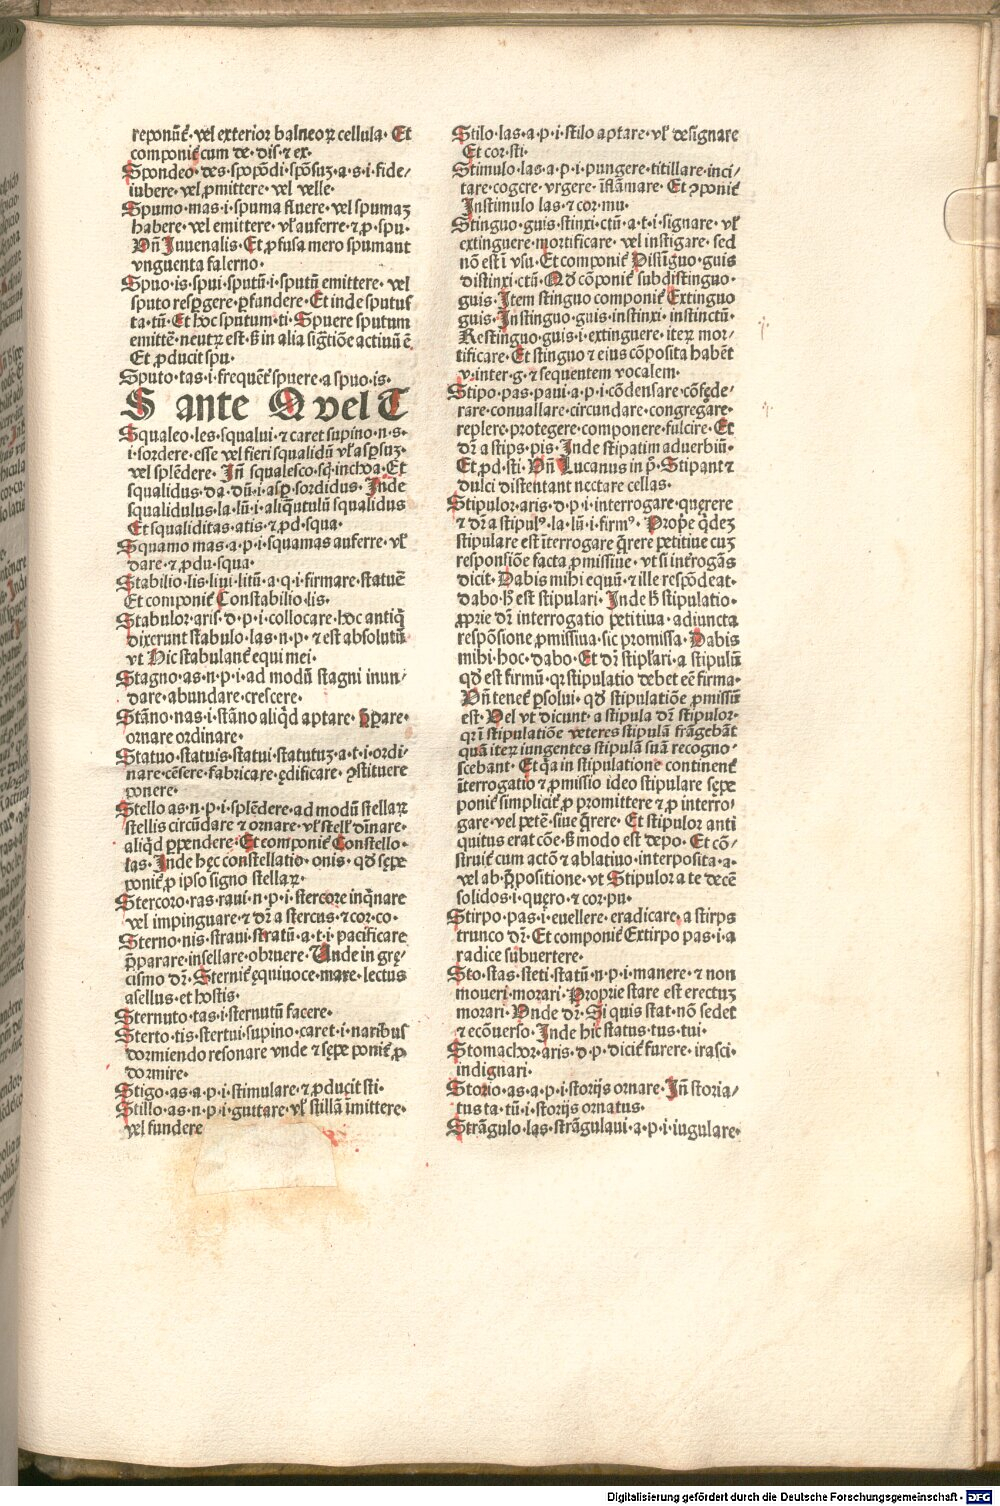 reponūt͛· vel exterioꝝ balneoꝝ cellula· Et
componit͛ cum de· dis· ⁊ ex·
Spondeo· des· spopōdi· spōsuꝫ· a· s· i· fide/
iubere· vel ꝓmittere· vel velle·
Spumo· mas· i· spuma fluere· vel spumaꝫ
habere· vel emittere· vl̓ auferre· ⁊ ꝓ· spu·
Vn̄ Iuuenalis· Et ꝓfusa mero spumant
vnguenta falerno·
Spuo· is· spui· sputū· i· sputū emittere· vel
sputo resꝑgere· ꝑfundere· Et inde sputus
ta· tū· Et hoc sputum· ti· Spuere sputum
emitt͛e· neutꝝ est· ß in alia sig͛tiōe actiuū ē·
Et ꝓducit spu·
Sputo· tas· i· frequēt͛ spuere· a spuo· is·
S ante Q vel T
Squaleo· les· squalui· ⁊ caret supino· n· s·
i· sordere· esse vel fieri squalidū vl̓ asꝑsuꝫ·
vel splēdere· Jn̄ squalesco· sq̄· inchoa· Et
squalidus· da· dū· i· asꝑ· sordidus· Jnde
squalidulus· la· lū· i· aliq̄utulū squalidus
Et squaliditas· atis· ⁊ ꝓd· squa·
Squamo mas· a· p· i· squamas auferre· vl̓
dare· ⁊ ꝓdu· squa·
Stabilio· lis· liui· litū· a· q· i· firmare· statuē
Et componit͛ Constabilio· lis·
Stabulor· aris· d· p· i· collocare· hoc antiq̄
dixerunt stabulo· las· n· p· ⁊ est absolutū
vt Hic stabulant͛ equi mei·
Stagno· as· n· p· i· ad modū stagni inun/
dare· abundare· crescere·
Stāno· nas· i· stāno aliq̄d aptare· ꝑpare·
ornare ordinare·
Statuo· statuis· statui· statutuꝫ· a· t· i· ordi/
nare· cēsere· fabricare· ędificare· ꝯstituere
ponere·
Stello as· n· p· i· splēdere· ad modū stellaꝝ
stellis circūdare ⁊ ornare· vl̓ stell̓ dīnare·
aliq̄d ꝑpendere· Et componit͛ Constello·
las· Inde hęc constellatio· onis· qd̄ sępe
ponit͛ ꝓ ipso signo stellaꝝ·
Stercoro· ras· raui· n· p· i· stercore inq̄nare
vel impinguare· ⁊ dr̄ a stercus· ⁊ cor· co·
Sterno· nis· straui· stratū· a· t· i· pacificare
p̄parare· insellare· obruere· Unde in grę/
cismo dr̄· Sternit͛ ęquiuoce· mare· lectus
asellus· et hostis·
Sternuto· tas· i· sternutū facere·
Sterto· tis· stertui· supino· caret· i· naribus
dormiendo resonare vnde ⁊ sępe ponit͛ ꝓ
dormire·
Stigo· as· a· p· i· stimulare· ⁊ ꝓducit sti·
Stillo· as· n· p· i· guttare· vl̓ stillā īmittere·
vel fundere
Stilo· las· a· p· i· stilo aptare· vl̓ designare
Et cor· sti·
Stimulo· las· a· p· i· pungere· titillare· inci/
tare· cogere· vrgere· īflāmare· Et ꝯponit͛
Instimulo las· ⁊ cor· mu·
Stinguo· guis· stinxi· ctū· a· t· i· signare· vl̓
extinguere· mortificare· vel instigare· sed
nō est ī vsu· Et componit͛ Distīguo· guis
distinxi· ctū· Qd̄ cōponit͛ subdistinguo·
guis· Item stinguo componit͛ Extinguo
guis· Instinguo· guis· instinxi· instinctū·
Restinguo· guis· i· extinguere· iteꝝ mor/
tificare· Et stinguo ⁊ eius cōposita habēt
v· inter· g· ⁊ sequentem vocalem·
Stipo· pas· paui· a· p· i· cōdensare· cōfęde/
rare· conuallare· circundare· congregare·
replere· protegere· componere· fulcire· Et
dr̄ a stips· pis· Inde stipatim aduerbiū·
Et ꝓd· sti· Vn̄ Lucanus in p̄· Stipant ⁊
dulci distentant nectare cellas·
Stipulor· aris· d· p· i· interrogare· quęrere
⁊ dr̄ a stipulꝰ· la· lū· i· firmꝰ· Prop̄e q̄deꝫ
stipulare est īterrogare q̄rere petitiue cuꝫ
responsiōe facta ꝓmissiue· vt si int͛rogās
dicit· Dabis mihi equū· ⁊ ille respōdeat·
dabo· h̄ est stipulari· Inde h̄ stipulatio·
ꝓprie dr̄ interrogatio petitiua· adiuncta
respōsione ꝓmissiua· sic promissa· Dabis
mihi hoc· dabo· Et dr̄ stipl̓ari· a stipulū
qd̄ est firmū· qꝛ stipulatio debet eē firma·
Vn̄ tenet͛ ꝑsolui· qd̄ stipulatiōe ꝓmissū
est· Vel vt dicunt· a stipula dr̄ stipulor·
qꝛ ī stipulatiōe veteres stipulā frāgebāt
quā iteꝝ iungentes stipulā suā recogno·
scebant· Et q̄a in stipulatione continent͛
īterrogatio ⁊ ꝓmissio ideo stipulare sępe
ponit͛ simplicit͛ ꝓ promittere ⁊ ꝓ interro/
gare· vel pet͛e· siue q̄rere· Et stipulor anti
quitus erat cōe· ß modo est depo· Et cō/
struit͛ cum actō ⁊ ablatiuo· interposita· a·
vel ab· p̄positione· vt Stipulor a te decē
solidos· i· quęro· ⁊ cor· pu·
Stirpo· pas· i· euellere· eradicare· a stirps
trunco dr̄· Et componit͛ Extirpo pas· i· a
radice subuertere·
Sto· stas· steti· statū· n· p· i· manere· ⁊ non
moueri· morari· Proprie stare est erectuꝫ
morari· Vnde dr̄· Si quis stat· nō sedet
⁊ ecōuerso· Inde hic status· tus· tui·
Stomachor· aris· d· p· dicit͛ furere· irasci·
indignari·
Storio· as· a· p· i· storijs ornare· Jn̄ storia/
tus· ta· tū· i· storijs ornatus·
Strāgulo· las· strāgulaui· a· p· i· iugulare·
Digitalisierung gefördert durch die Deutsche Forschungsgemeinschaft - DFG